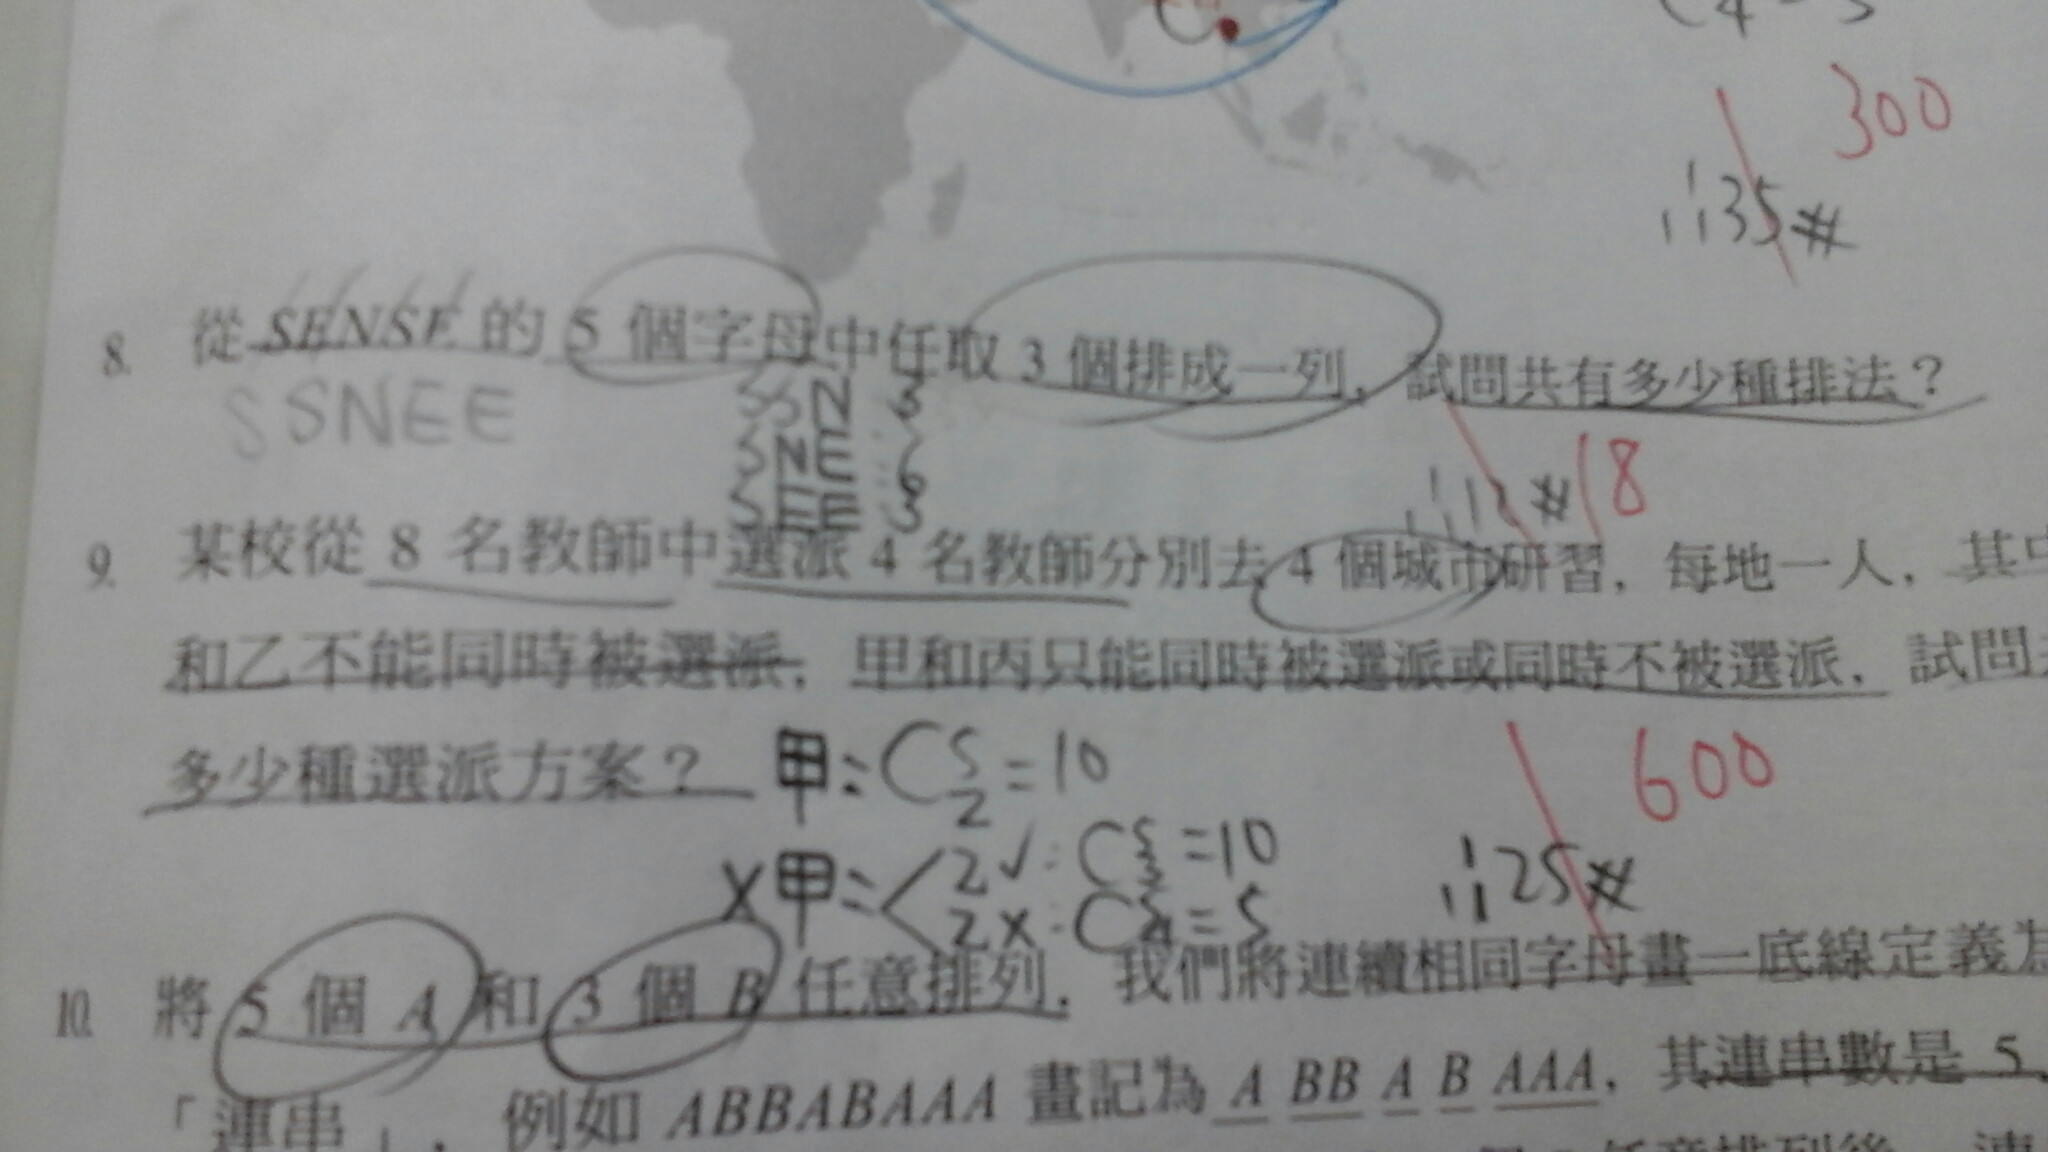 300
∴35#
8. 從 SENSE 的 5 個字母中任取 3 個排成一列，試問共有多少種排法？
SSNEE
SSN：3
SNE：6
SEE：3
∴12# 18
9. 某校從 8 名教師中選派 4 名教師分別去 4 個城市研習，每地一人，其中
和乙不能同時被選派，甲和丙只能同時被選派或同時不被選派，試問
多少種選派方案？
甲：C5 2 = 10
600
X甲：< 乙✓：C5 3 = 10
乙x：C5 4 = 5
∴25#
10. 將 5 個 A 和 3 個 B 任意排列，我們將連續相同字母畫一底線定義為
「連串」，例如 ABBABAAA 畫記為 A BB A B AAA，其連串數是 5，
任意排列後，連